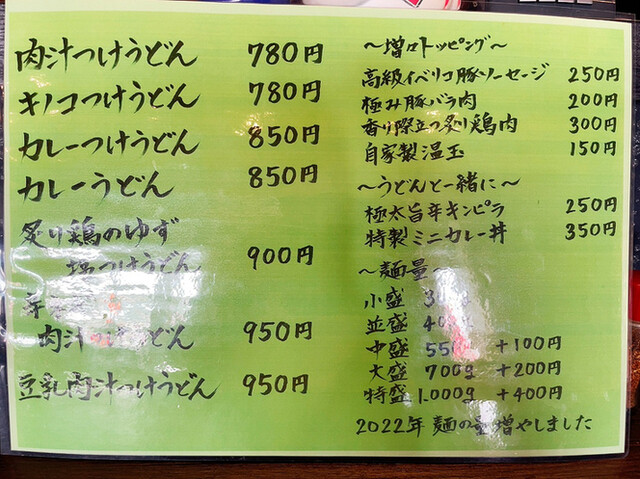 肉汁つけうどん 780円
キノコつけうどん 780円
カレーつけうどん 850円
カレーうどん 850円
炙り鶏のゆず
塩つけうどん 900円
肉汁つけうどん 950円
豆乳肉汁つけうどん 950円
〜増々トッピング〜
高級イベリコ豚ソーセージ 250円
極み豚バラ肉 200円
香り際立つ炙り鶏肉 300円
自家製温玉 150円
〜うどんと一緒に〜
極太旨辛キンピラ 250円
特製ミニカレー丼 350円
〜麺量〜
小盛 300g
並盛 400g
中盛 550g +100円
大盛 700g +200円
特盛 1.000g +400円
2022年 麺の量増やしました